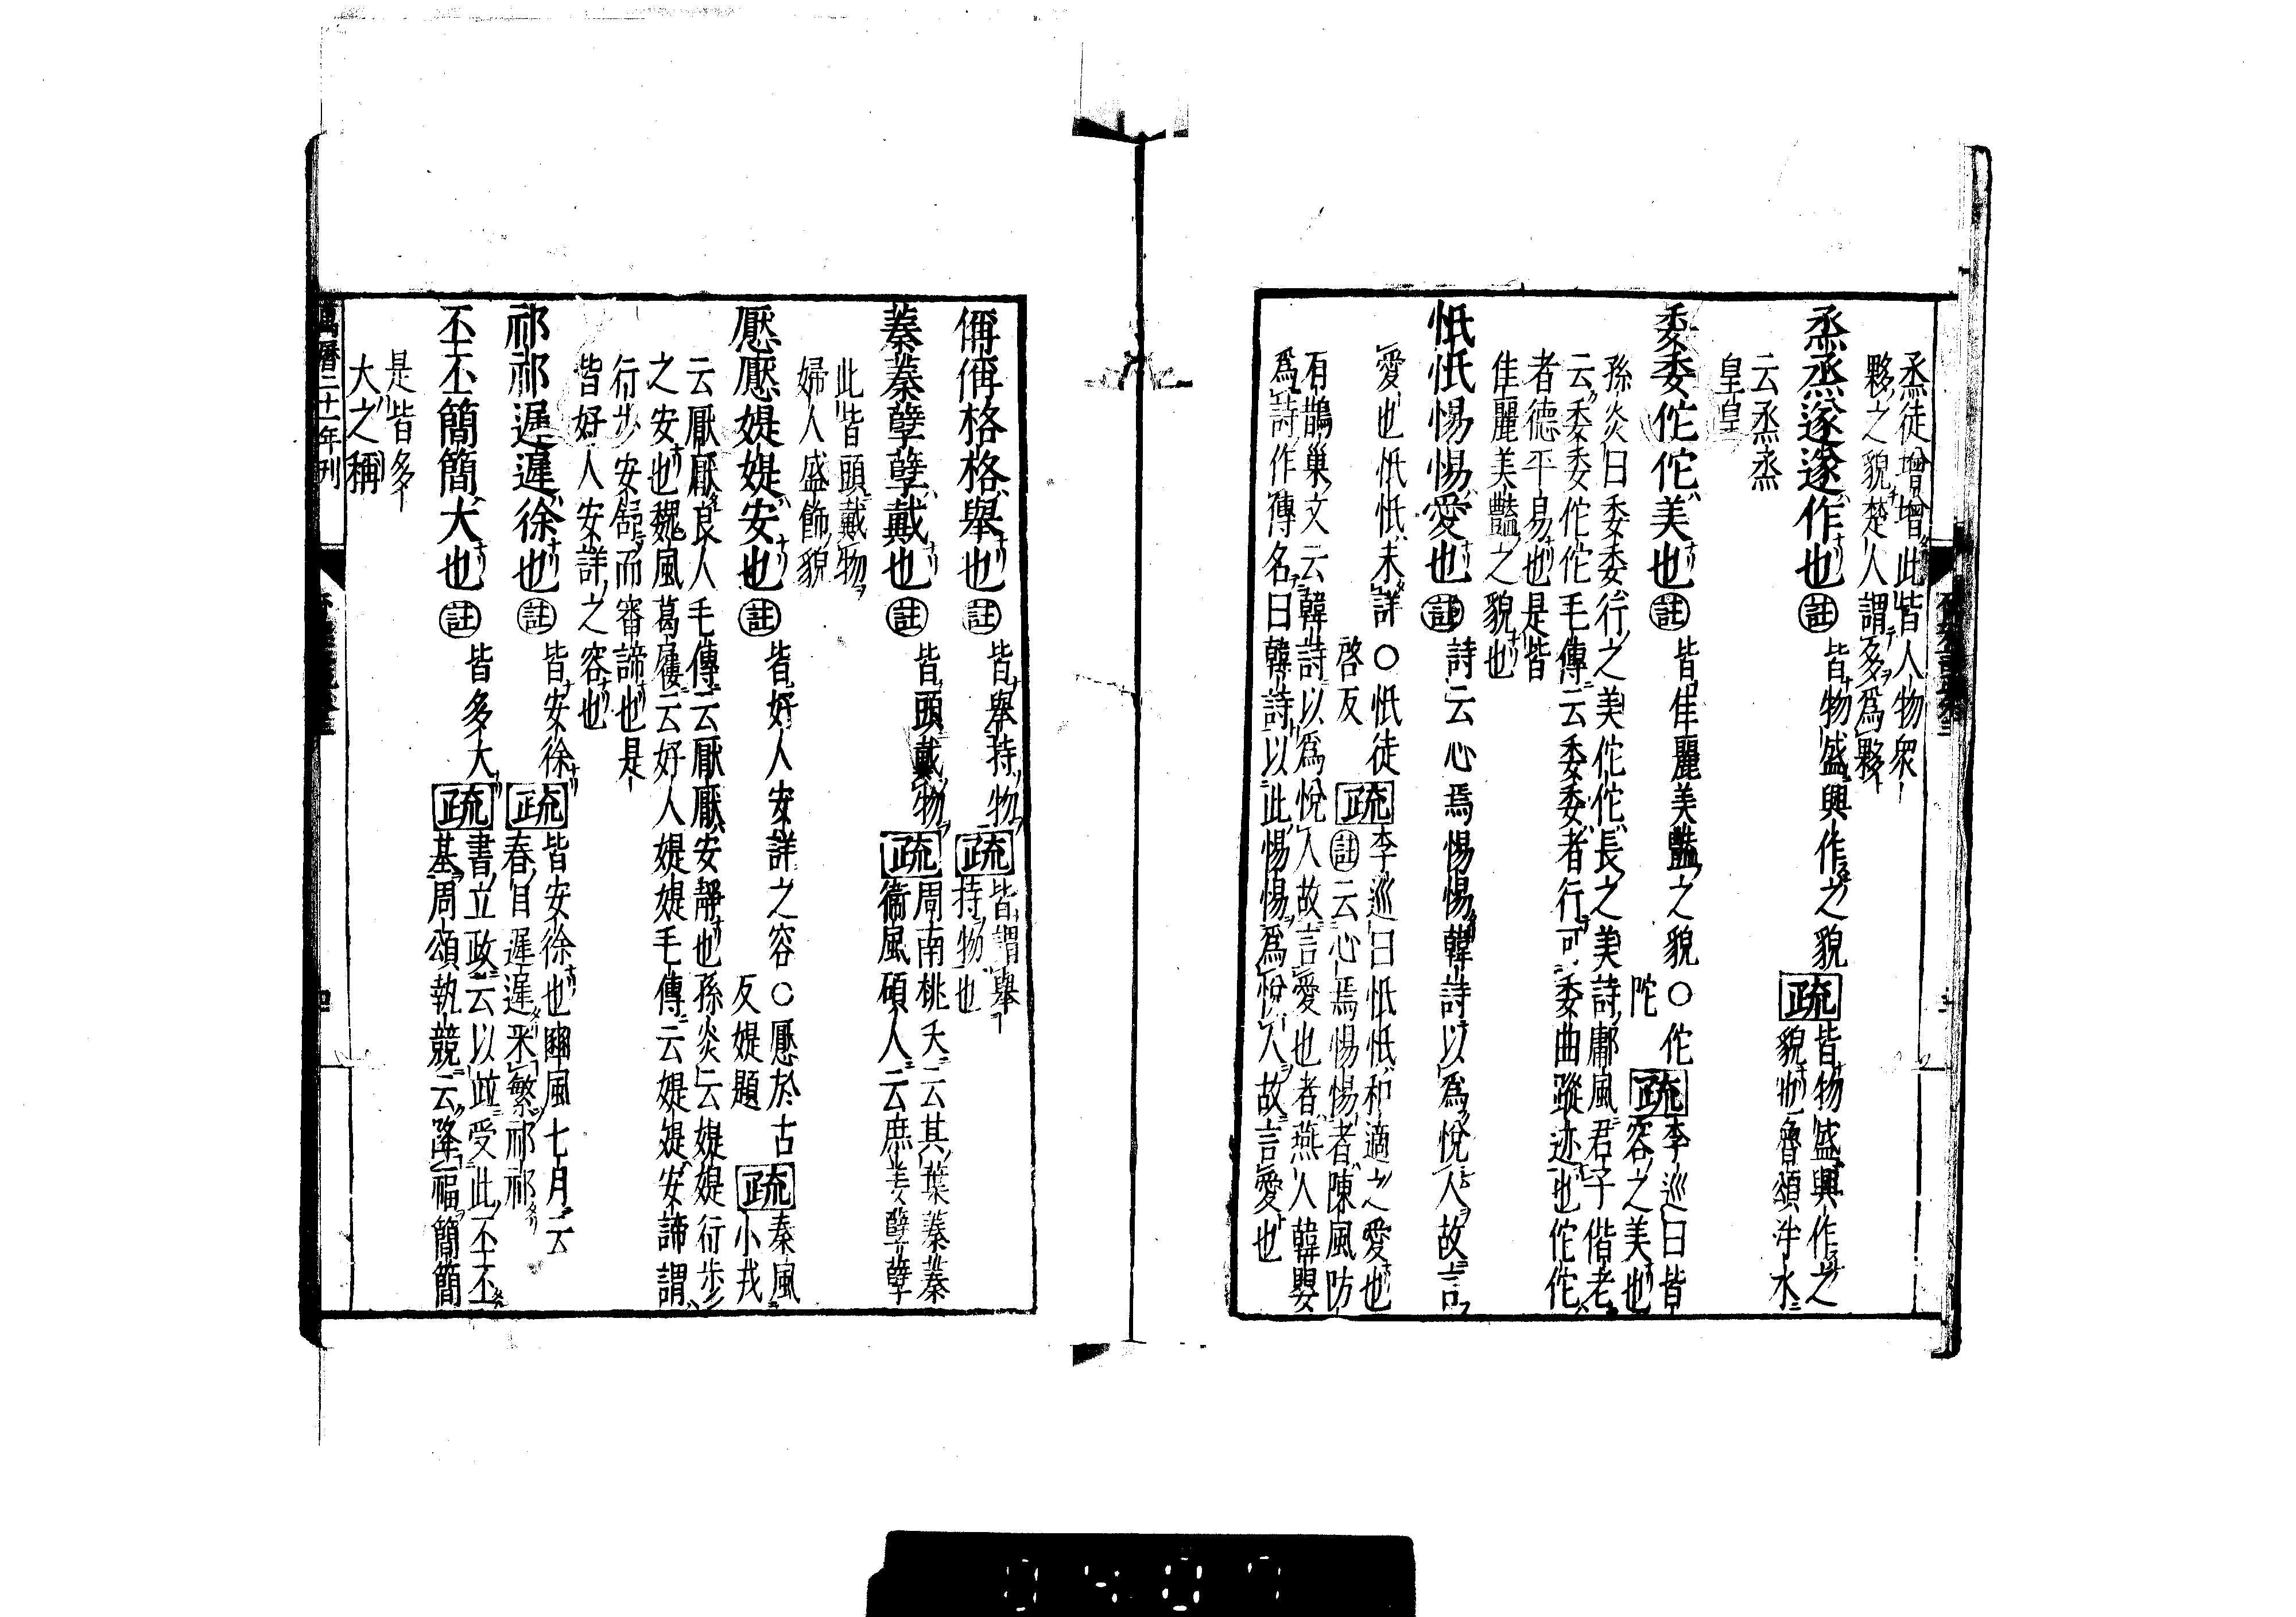 烝徒增增此皆人物衆
夥之貌楚人謂多爲夥
烝烝遂遂作也註皆物盛興作之貌疏皆物盛興作之
貌也魯頌泮水
云烝烝
皇皇
委委佗佗美也註皆佳麗美豔之貌○佗
陀
疏李巡曰皆
容之美也
孫炎曰委委行之美佗佗長之美詩鄘風君子偕老
云委委佗佗毛傳云委委者行可委曲蹤迹也佗佗
者德平易也是皆
佳麗美豔之貌也
怟怟惕惕愛也註詩云心焉惕惕韓詩以爲悅人故言
愛也怟怟未詳○怟徒
啓反
疏李巡曰怟怟和適之愛也
註云心焉惕惕者陳風防
有鵲巢文云韓詩以爲悅人故言愛也者燕人韓嬰
爲詩作傳名曰韓詩以此惕惕爲悅人故言愛也
偁偁格格舉也註皆舉持物疏皆謂舉
持物也
蓁蓁孽孽戴也註皆頭戴物疏周南桃夭云其葉蓁蓁
衞風碩人云庶姜孽孽
此皆頭戴物
婦人盛飾貌
懕懕媞媞安也註皆好人安詳之容○懕於古
反媞題
疏秦風
小戎
云厭厭良人毛傳云厭厭安靜也孫炎云媞媞行步
之安也魏風葛屨云好人媞媞毛傳云媞媞安諦謂
行步安舒而審諦也是
皆好人安詳之容也
祁祁遲遲徐也註皆安徐疏皆安徐也豳風七月云
春日遲遲采蘩祁祁
丕丕簡簡大也註皆多大疏書立政云以竝受此丕丕
基周頌執競云降福簡簡
是皆多
大之稱
萬曆二十一年刊